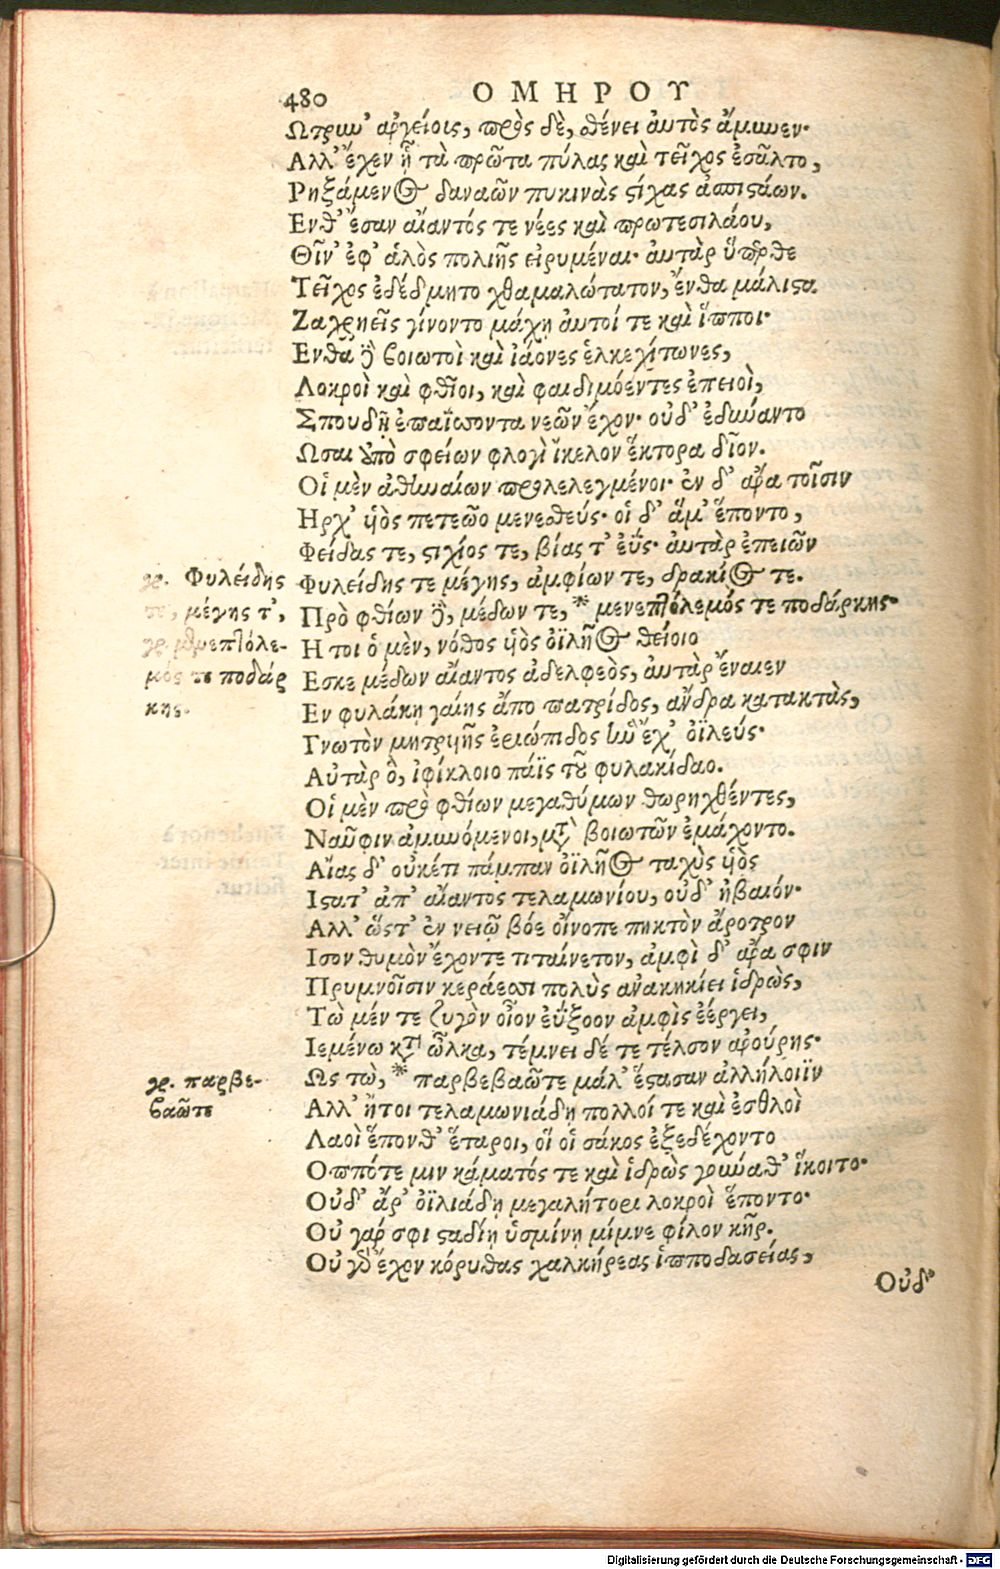 480 ΟΜΗΡΟΥ
Ωτρυν' ἀργείοις, πρὸς δὲ, σθένει ἀυτὸς ἄμυνεν·
Αλλ' ἔχεν ᾗ τὰ πρῶτα πύλας καὶ τεῖχος ἐσᾶλτο,
Ρηξάμενος δαναῶν πυκινὰς στίχας ἀσπιστάων.
Ενθ' ἔσαν αἴαντός τε νέες καὶ πρωτεσιλάου,
Θῖν' ἐφ' ἁλὸς πολιῆς εἰρυμέναι· ἀυτὰρ ὕπερθε
Τεῖχος ἐδέδμητο χθαμαλώτατον, ἔνθα μάλιστα
Ζαχρηεῖς γίνοντο μάχῃ ἀυτοί τε καὶ ἵπποι·
Ενθα δὲ βοιωτοὶ καὶ ἰάονες ἑλκεχίτωνες,
Λοκροὶ καὶ φθῖοι, καὶ φαιδιμόεντες ἐπειοὶ,
Σπουδῇ ἐπαΐσσοντα νεῶν ἔχον· οὐδ' ἐδύναντο
Ωσαι ὑπὸ σφείων φλογὶ ἴκελον ἕκτορα δῖον.
Οἱ μὲν ἀθηναίων προλελεγμένοι· ἐν δ' ἄρα τοῖσιν
Ηρχ' υἱὸς πετεῶο μενεσθεύς· οἱ δ' ἅμ' ἕποντο,
Φείδας τε, στιχίος τε, βίας τ' ἐΰς· ἀυτὰρ ἐπειῶν
γρ. Φυλείδης
Φυλείδης τε μέγης, ἀμφίων τε, δρακίος τε.
τε, μέγης τ',
Πρὸ φθίων δὲ, μέδων τε, * μενεπτόλεμός τε ποδάρκης·
γρ. μενεπτόλε-
Η τοι ὁ μὲν, νόθος υἱὸς ὀϊλῆος θείοιο
μός τε ποδάρ
Εσκε μέδων αἴαντος ἀδελφεὸς, ἀυτὰρ ἔναιεν
κης.
Εν φυλάκῃ γαίης ἄπο πατρίδος, ἄνδρα κατακτὰς,
Γνωτὸν μητρυιῆς ἐριώπιδος ἣν ἔχ' ὀϊλεύς·
Αὐτὰρ ὃ, ἰφίκλοιο πάϊς τοῦ φυλακίδαο.
Οἱ μὲν πρὸ φθίων μεγαθύμων θωρηχθέντες,
Ναῦφιν ἀμυνόμενοι, μετὰ βοιωτῶν ἐμάχοντο.
Αἴας δ' οὐκέτι πάμπαν ὀϊλῆος ταχὺς υἱὸς
Ιστατ' ἀπ' αἴαντος τελαμωνίου, οὐδ' ἠβαιόν·
Αλλ' ὥστ' ἐν νειῷ βόε οἴνοπε πηκτὸν ἄροτρον
Ισον θυμὸν ἔχοντε τιταίνετον, ἀμφὶ δ' ἄρα σφιν
Πρυμνοῖσιν κεράεσσι πολὺς ἀνακηκίει ἱδρὼς,
Τὼ μέν τε ζυγὸν οἶον ἐΰξοον ἀμφὶς ἐέργει,
Ιεμένω κατὰ ὦλκα, τέμνει δέ τε τέλσον ἀρούρης·
γρ. παρβε-
Ως τὼ, * παρβεβαῶτε μάλ' ἕστασαν ἀλλήλοιϊν
βαῶτε
Αλλ' ἤτοι τελαμωνιάδῃ πολλοί τε καὶ ἐσθλοὶ
Λαοὶ ἕπονθ' ἕταροι, οἵ οἱ σάκος ἐξεδέχοντο
Οππότε μιν κάματός τε καὶ ἱδρὼς γούναθ' ἵκοιτο·
Οὐδ' ἄρ' ὀϊλιάδῃ μεγαλήτορι λοκροὶ ἕποντο·
Οὐ γάρ σφι σταδίῃ ὑσμίνῃ μίμνε φίλον κῆρ.
Οὐ γὰρ ἔχον κόρυθας χαλκήρεας ἱπποδασείας,
Οὐδ'
Digitalisierung gefördert durch die Deutsche Forschungsgemeinschaft - DFG